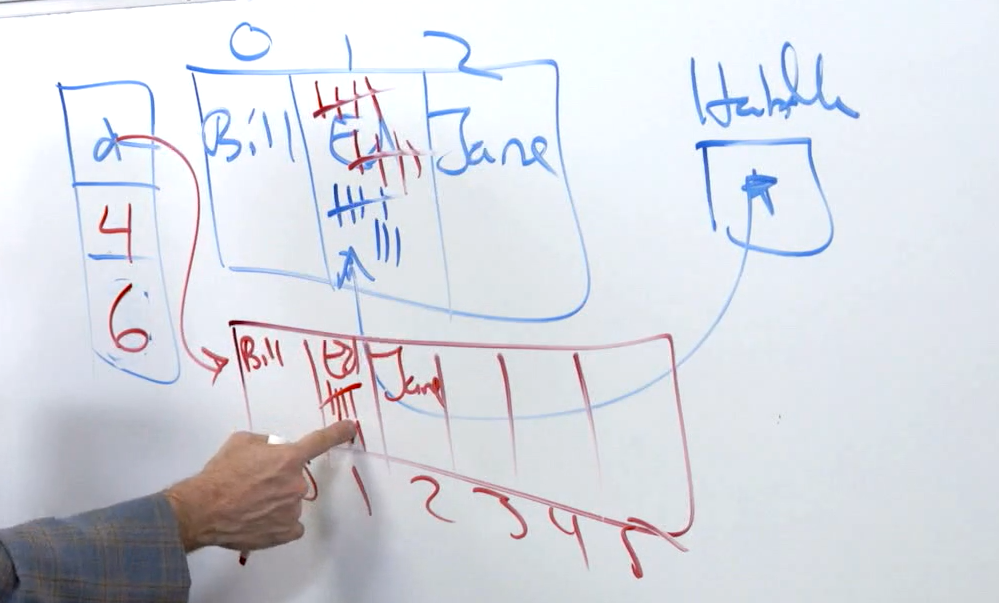 0 1 2
Bill Ed Jane
4
6
Bill Ed Jane
0 1 2 3 4 5